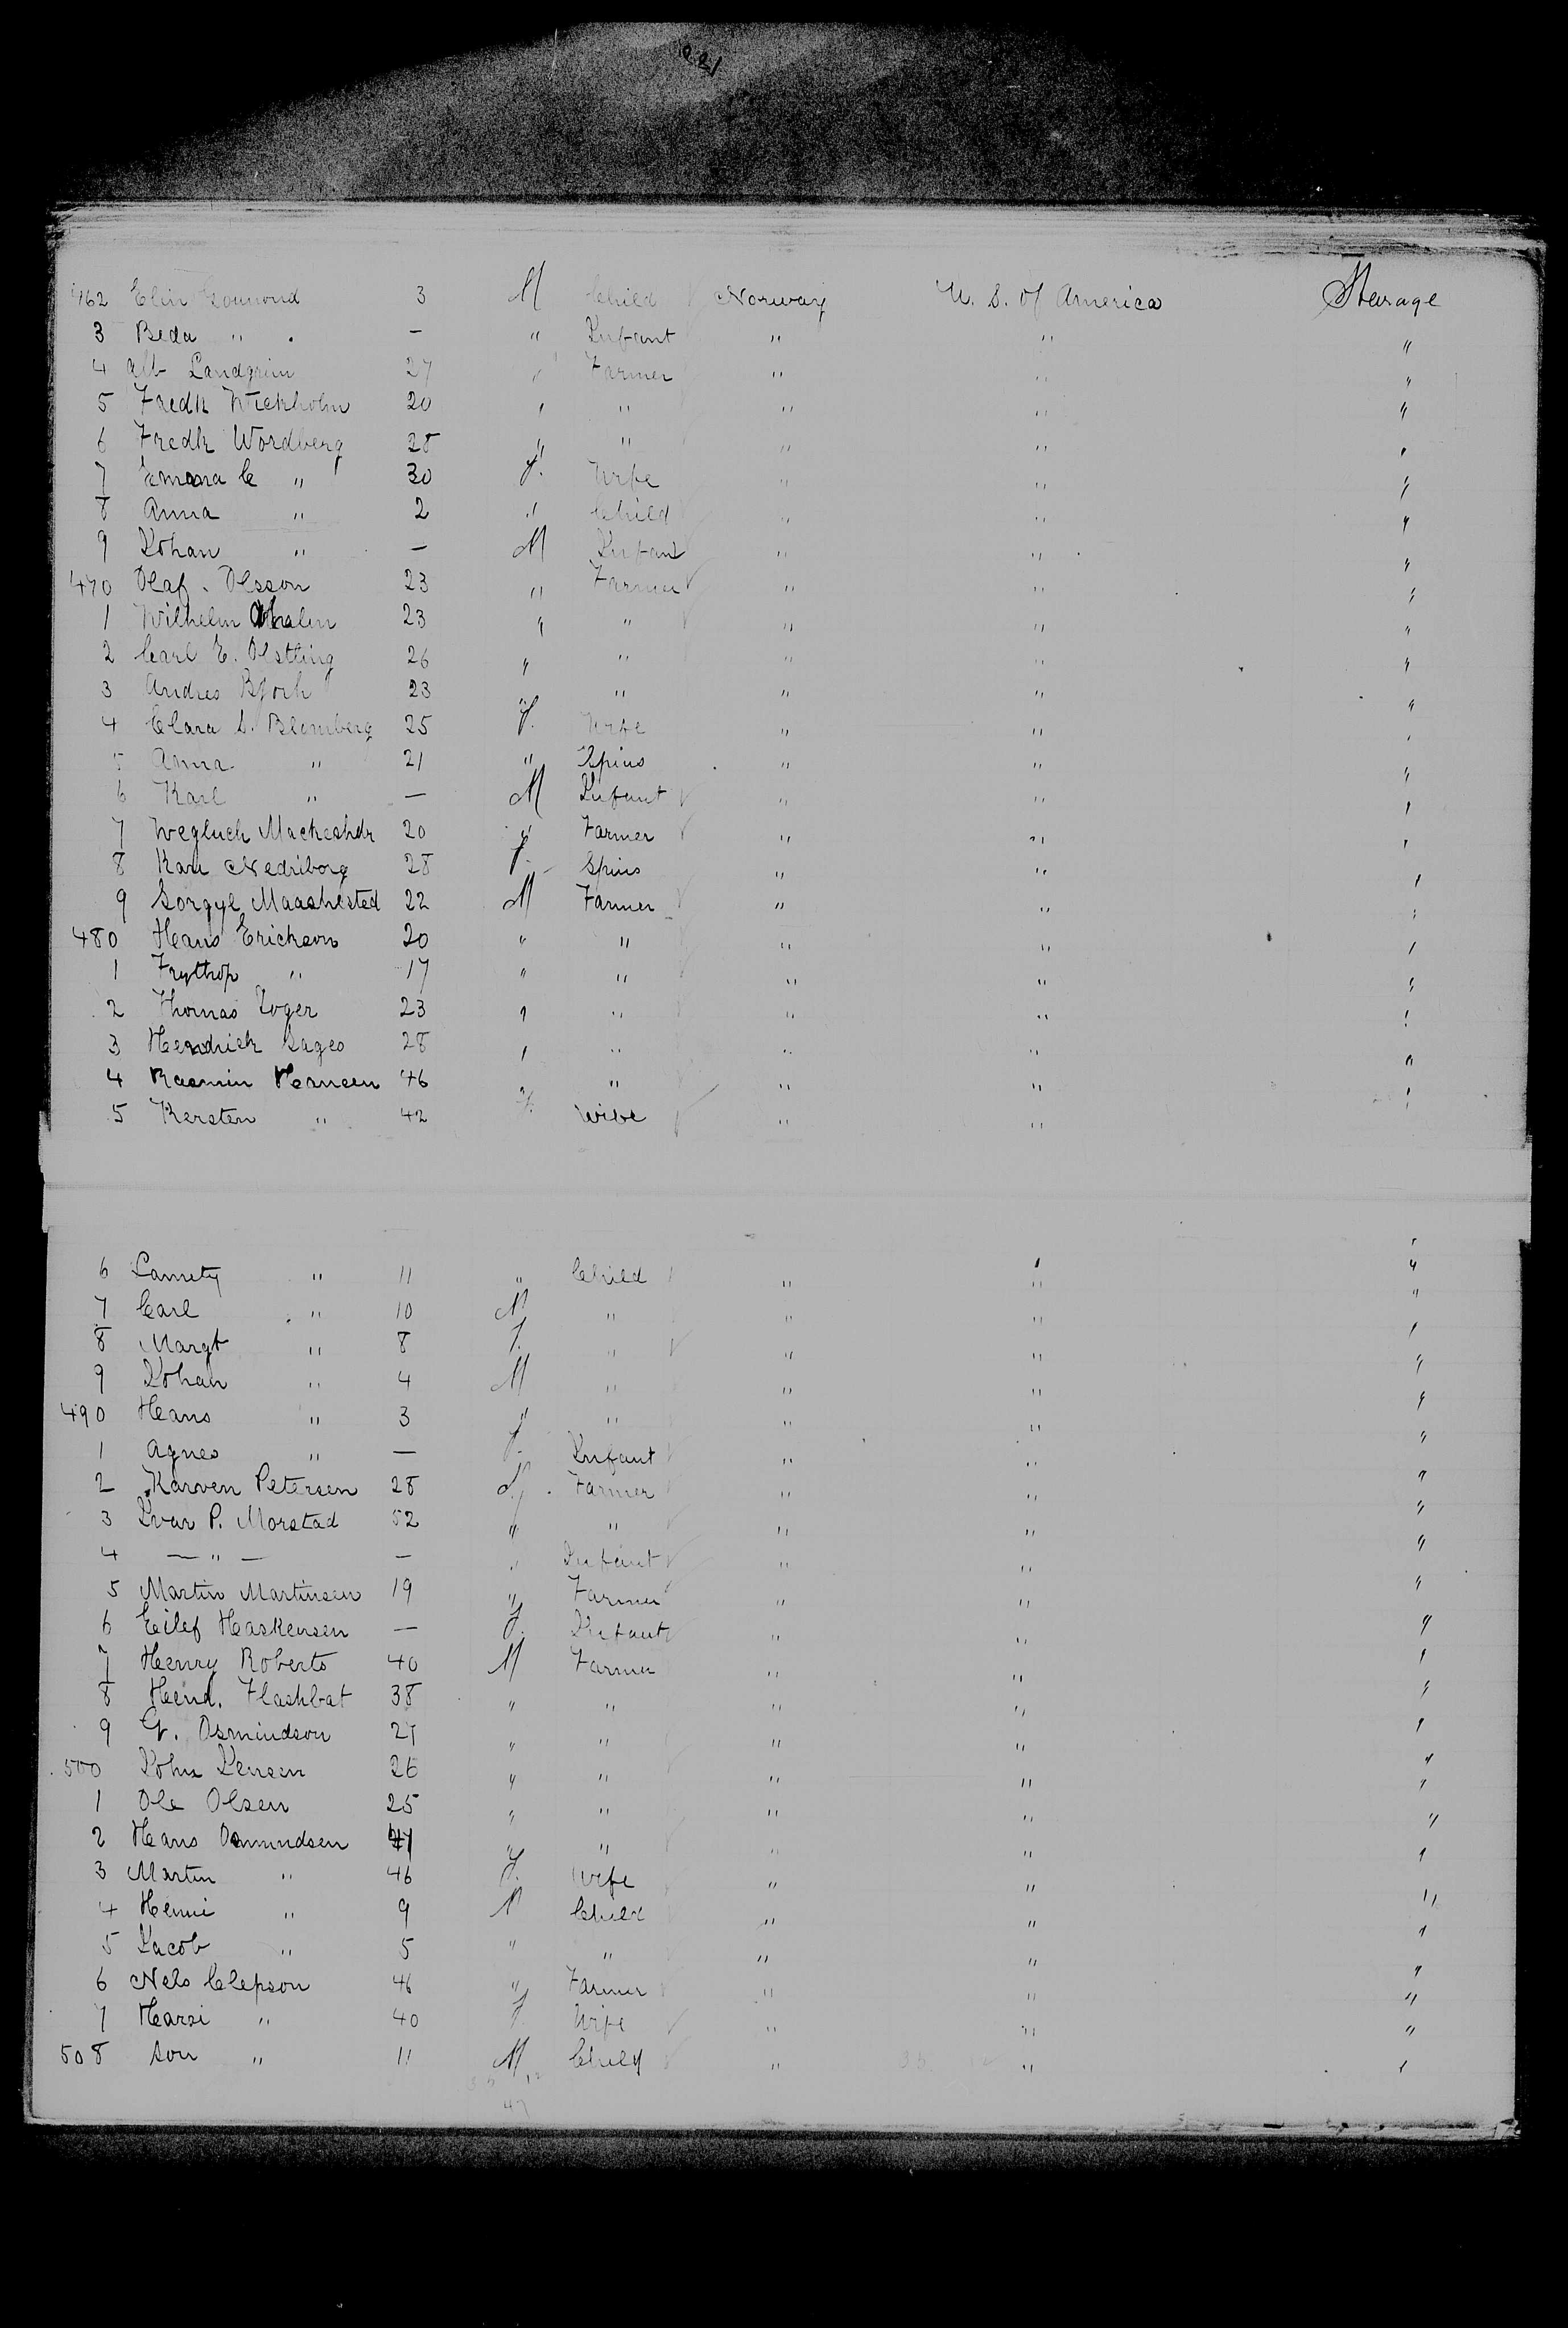 221
462 Elin Gounond 3 M Child Norway U. S. of America Stearage
3 Beda " — " Infant " " "
4 Alb Landgrim 27 " Farmer " " "
5 Fredk Wickholm 20 " " " " "
6 Fredk Wordberg 28 " " " " "
7 Emma C " 30 f. Wife " " "
8 Anna " 2 " Child " " "
9 Johan " — M Infant " " "
470 Olaf. Olsson 23 " Farmer " " "
1 Wilhelm 23 " " " " "
2 Carl E. Olstling 26 " " " " "
3 Andres Bjork 23 " " " " "
4 Clara S. Blomberg 25 f. Wife " " "
5 Anna " 21 " Spins " " "
6 Karl " — M Infant " " "
7 Wegluch Mackeshdr 20 " Farmer " " "
8 Kari Nedriborg 28 f. Spins " " "
9 Sorgyl Maashested 22 M Farmer " " "
480 Hans Erickson 20 " " " " "
1 Frythop " 17 " " " " "
2 Thomas Loger 23 " " " " "
3 Hendrick Sages 28 " " " " "
4 Rasmin Hansen 46 " " " " "
5 Kersten " 42 f. Wife " " "
6 Lamety " 11 " Child " " "
7 Carl " 10 M " " " "
8 Margt " 8 f. " " " "
9 Johan " 4 M " " " "
490 Hans " 3 " " " " "
1 Agnes " — f. Infant " " "
2 Karven Petersen 28 Farmer " " "
3 Ivar P. Morstad 52 " " " " "
4 — " — — " Infant " " "
5 Martin Martinsen 19 " Farmer " " "
6 Eilef Haskensen — f. Infant " " "
7 Henry Roberts 40 M Farmer " " "
8 Hend. Flashbat 38 " " " " "
9 G. Osmindson 27 " " " " "
500 John Jensen 26 " " " " "
1 Ole Olsen 25 " " " " "
2 Hans Osmundsen 47 " " " " "
3 Martin " 46 f. Wife " " "
4 Henni " 9 M Child " " "
5 Jacob " 5 " " " " "
6 Nels Clepson 46 " Farmer " " "
7 Harsi " 40 f. Wife " " "
508 Son " 11 M Child " " "
35 12
47